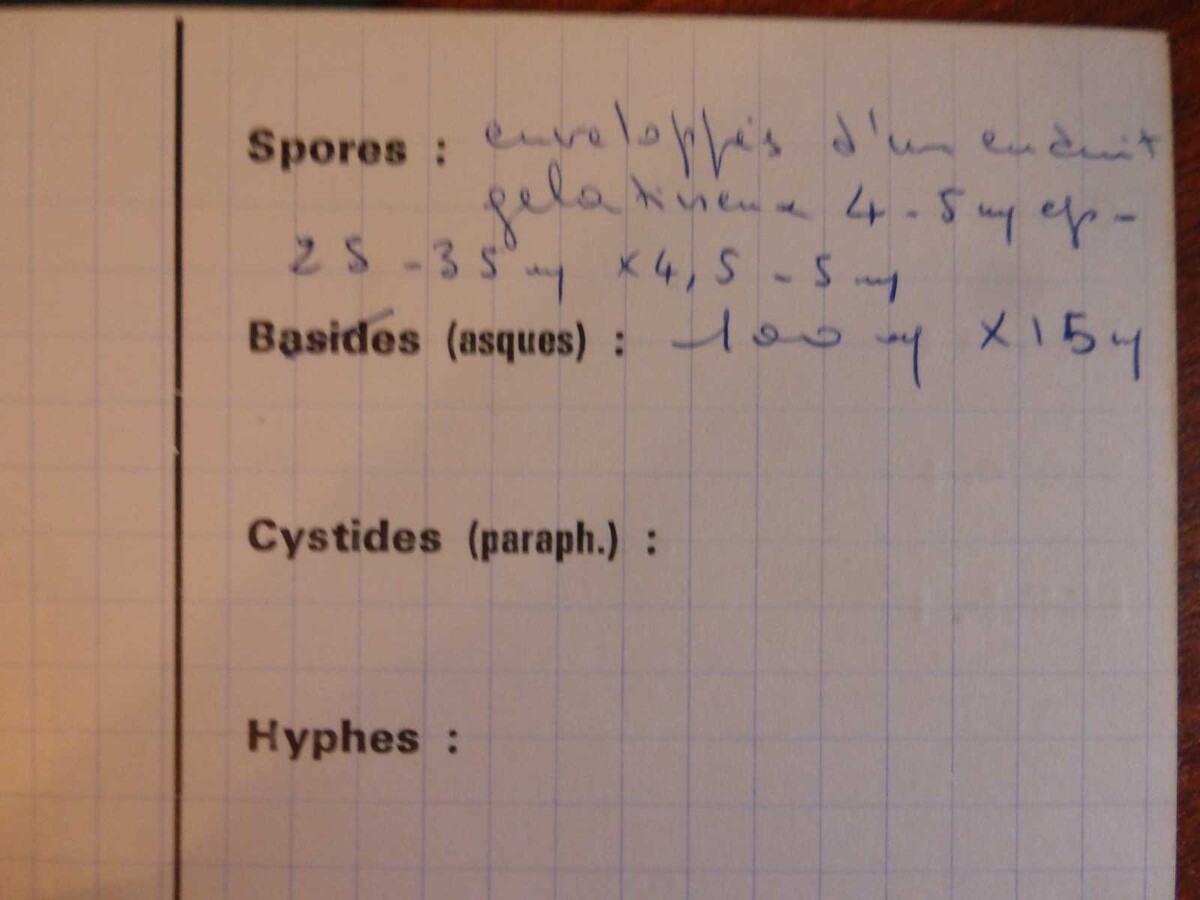 Spores : enveloppés d'un enduit
gelatineux 4-5 my ep-
25-35 my x 4,5-5 my
Basides (asques) : 100 my x 15 my
Cystides (paraph.) :
Hyphes :